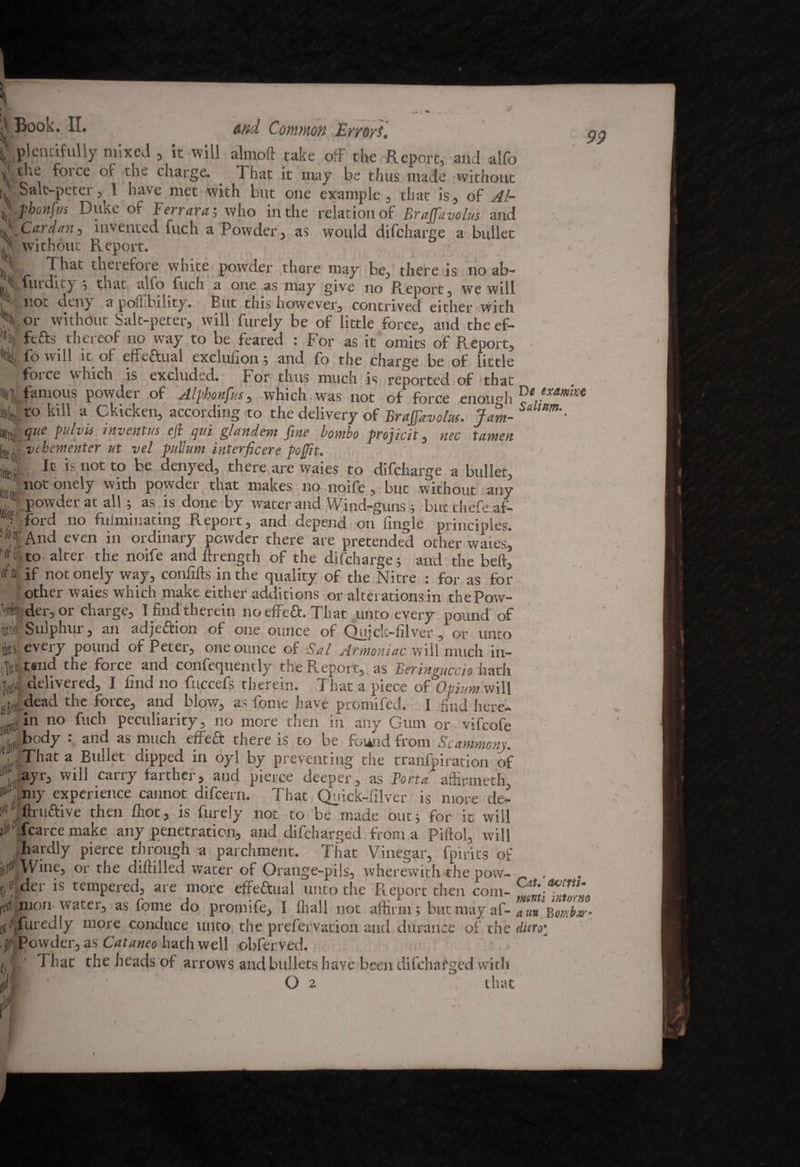 Book. II. and Common Errors. 99
plentifully mixed, it will almoſt take off the Report, and alſo
the force of the charge. That it may be thus made without
Salt-peter, I have met with but one example, that is, of Al-
phonſus Duke of Ferrara; who in the relation of Braſſavolus and
Cardan, invented ſuch a Powder, as would diſcharge a bullet
without Report.
That therefore white powder there may be, there is no ab-
ſurdity; that alſo ſuch a one as may give no Report, we will
not deny a poſſibility. But this however, contrived either with
or without Salt-peter, will ſurely be of little force, and the ef-
fects thereof no way to be feared: For as it omits of Report,
ſo will it of effectual excluſion; and ſo the charge be of little
force which is excluded. For thus much is reported of that
famous powder of Alphonſus, which was not of force enough
to kill a Chicken, according to the delivery of Braſſavolus. Jam-
que pulvis inventus eſt qui glandem ſine bombo projicit, nec tamen
vehementer ut vel pullum interficere poſſit.
De examine
Salium.
It is not to be denyed, there are waies to diſcharge a bullet,
not onely with powder that makes no noiſe, but without any
powder at all; as is done by water and Wind-guns; but theſe af-
ford no fulminating Report, and depend on ſingle principles.
And even in ordinary powder there are pretended other waies,
to alter the noiſe and ſtrength of the diſcharge; and the beſt,
if not onely way, conſiſts in the quality of the Nitre: for as for
other waies which make either additions or alterations in the Pow-
der, or charge, I find therein no effect. That unto every pound of
Sulphur, an adjection of one ounce of Quick-ſilver, or unto
every pound of Peter, one ounce of Sal Armoniac will much in-
tend the force and conſequently the Report, as Beringuccio hath
delivered, I find no ſucceſs therein. That a piece of Opium will
dead the force, and blow, as ſome have promiſed. I find here-
in no ſuch peculiarity, no more then in any Gum or viſcoſe
body: and as much effect there is to be found from Scammony.
That a Bullet dipped in oyl by preventing the tranſpiration of
ayr, will carry farther, and pierce deeper, as Porta affirmeth,
my experience cannot diſcern. That Quick-ſilver is more de-
ſtructive then ſhot, is ſurely not to be made out; for it will
ſcarce make any penetration, and diſcharged from a Piſtol, will
hardly pierce through a parchment. That Vinegar, ſpirits of
Wine, or the diſtilled water of Orange-pils, wherewith the pow-
der is tempered, are more effectual unto the Report then com-
mon water, as ſome do promiſe, I ſhall not affirm; but may aſ-
ſuredly more conduce unto the preſervation and durance of the
Powder, as Cataneo hath well obſerved.
Cat. averti-
menti intorno
a un Bombar-
diero.
That the heads of arrows and bullets have been diſcharged with
O 2 that